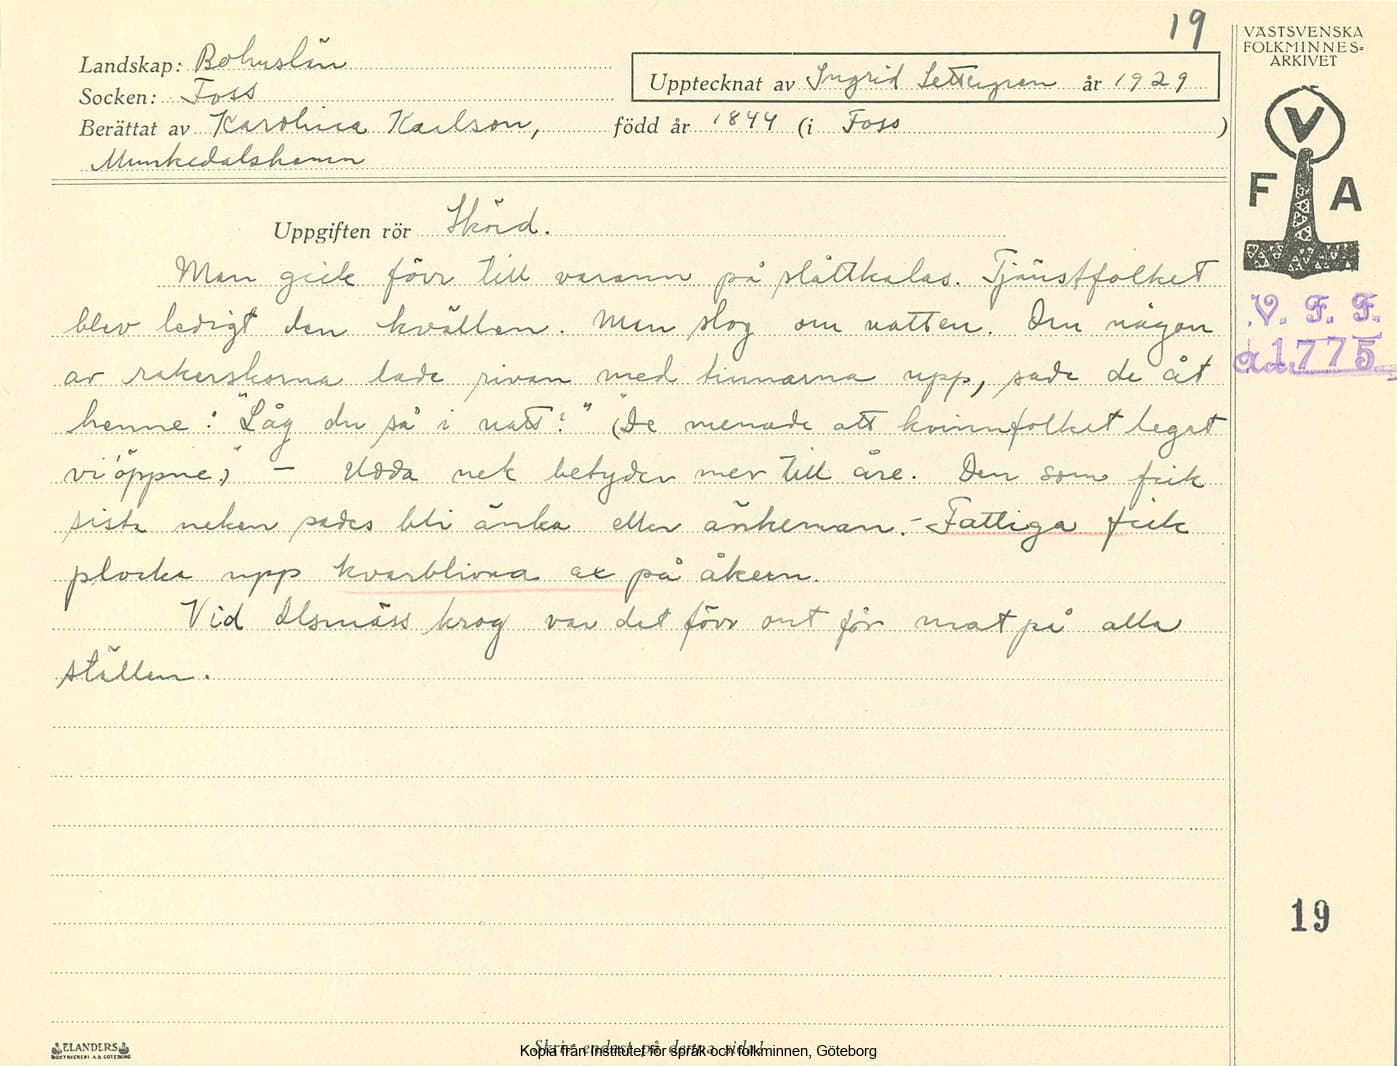 19
VÄSTSVENSKA
FOLKMINNES-
ARKIVET
Landskap: Bohuslän
Upptecknat av Ingrid Settergren år 1929
Socken: Foss
Berättat av Karolina Karlson, född år 1844 (i Foss)
Munkedalshamn
V
F A
Uppgiften rör Skörd.
Man gick förr till varann på slåttkalas. Tjänstfolket
V. F. F.
blev ledigt den kvällen. Man slog om natten. Om någon
Ad. 1775
av rakerskorna lade rivan med tinnarna upp, sade de åt
henne: "Låg du så i natt?" (De menade att kvinnfolket legat
vi'öppne.) — Udda nek betyder mer till åre. Den som fick
sista neken sades bli änka eller änkeman. - Fattiga fick
plocka upp kvarblivna ax på åkern.
Vid Olsmäss krog var det förr ont för mat på alla
ställen.
19
ELANDERS
BOKTRYCKERI A.B. GÖTEBORG
Skriv endast på denna sida!
Kopia från Institutet för språk och folkminnen, Göteborg